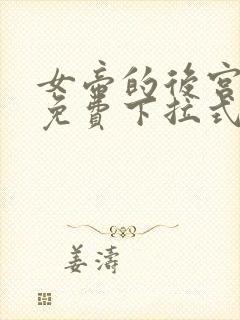 女帝的後宮
免費下拉式
姜濤